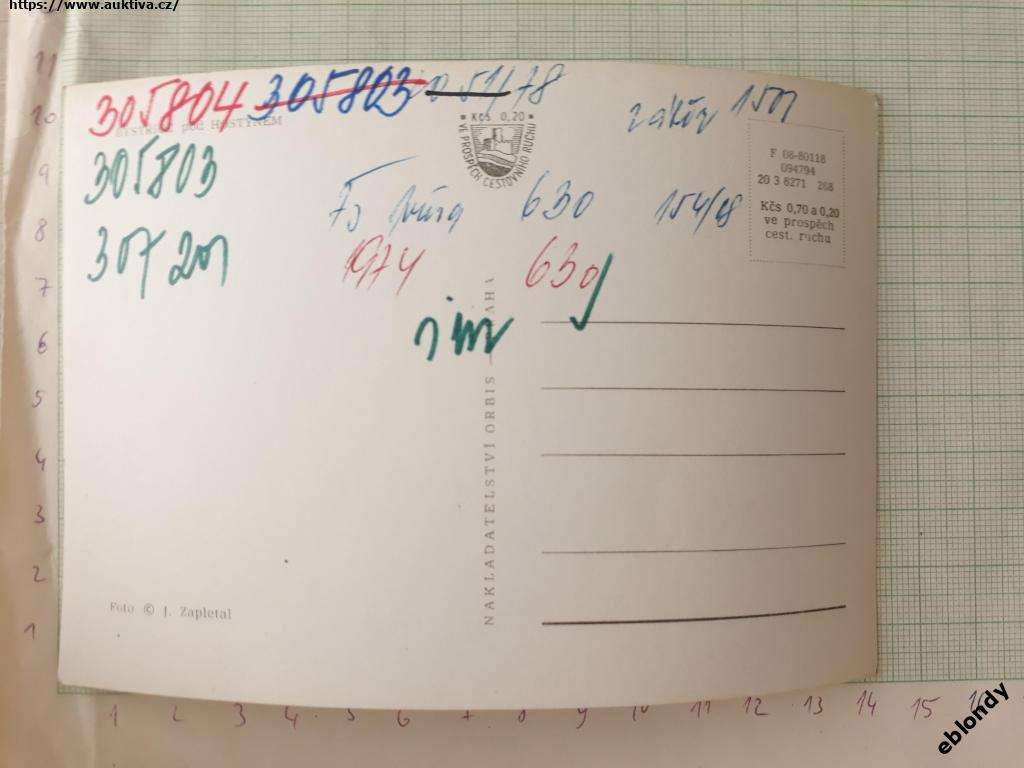 https://www.auktiva.cz/
305804 305803
BYSTŘICE pod HOSTÝNEM
* Kčs 0,20 *
VE PROSPĚCH CESTOVNÍHO RUCHU
305803
630
307
1974
630
F 08-80118
094794
20 3 6271 268
Kčs 0,70 a 0,20
ve prospěch
cest. ruchu
NAKLADATELSTVÍ ORBIS — PRAHA
Foto © J. Zapletal
11
10
9
8
7
6
5
4
3
2
1
1 2 3 4 5 6 7 8 9 10 11 12 13 14 15
eblondy